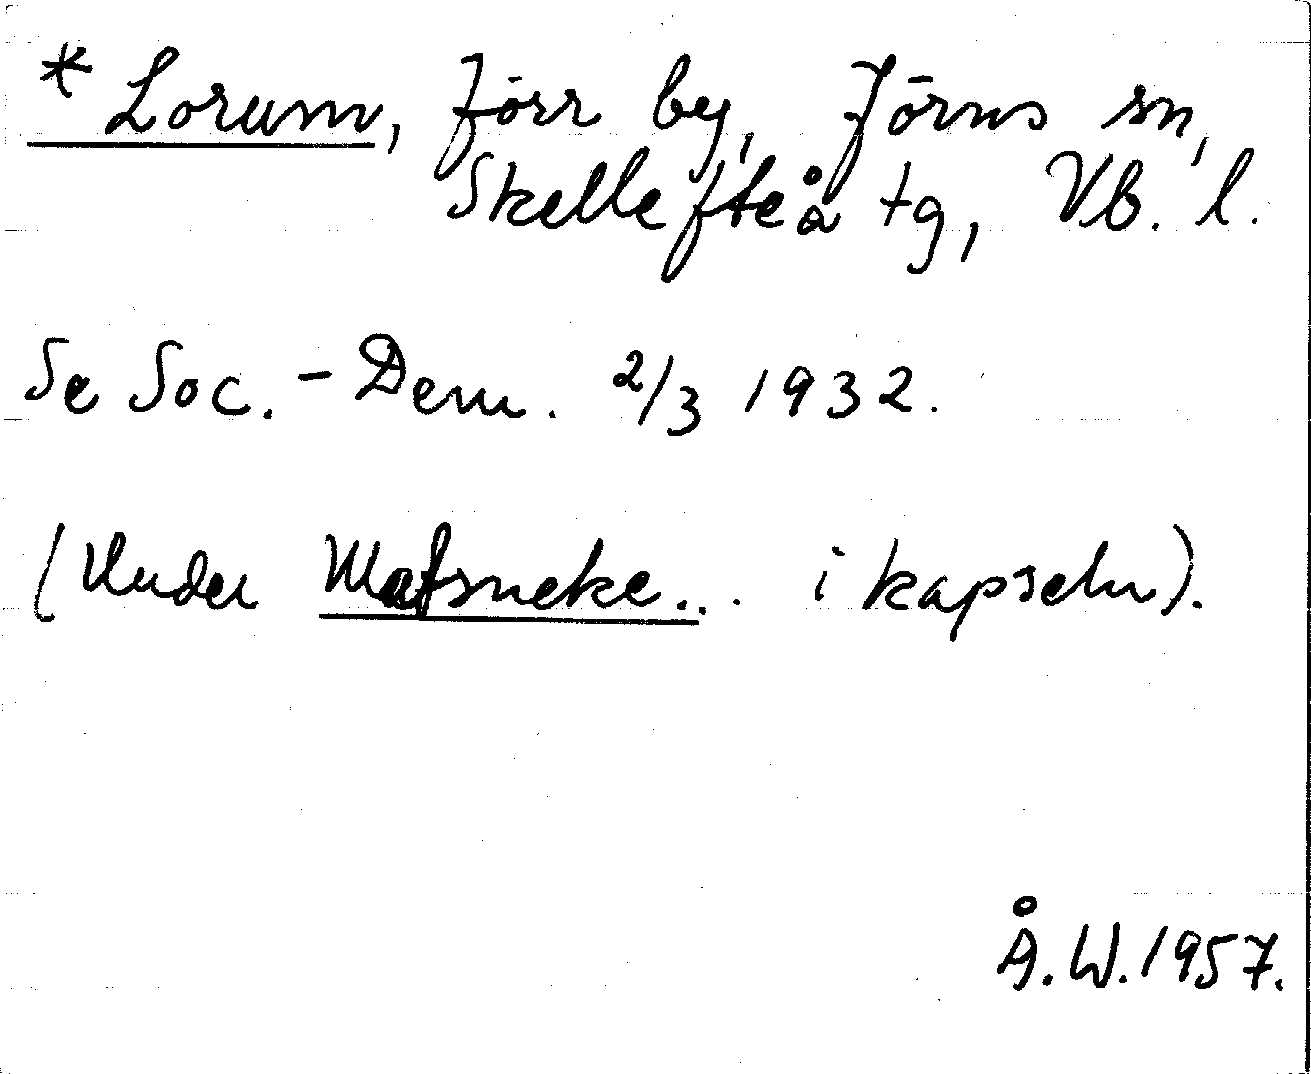 * Lorum, förr by, Jörns sn,
Skellefteå tg, Vb. l.
Se Soc. - Dem. 2/3 1932.
(Under Mafsneke... i kapseln).
Å. W. 1957.